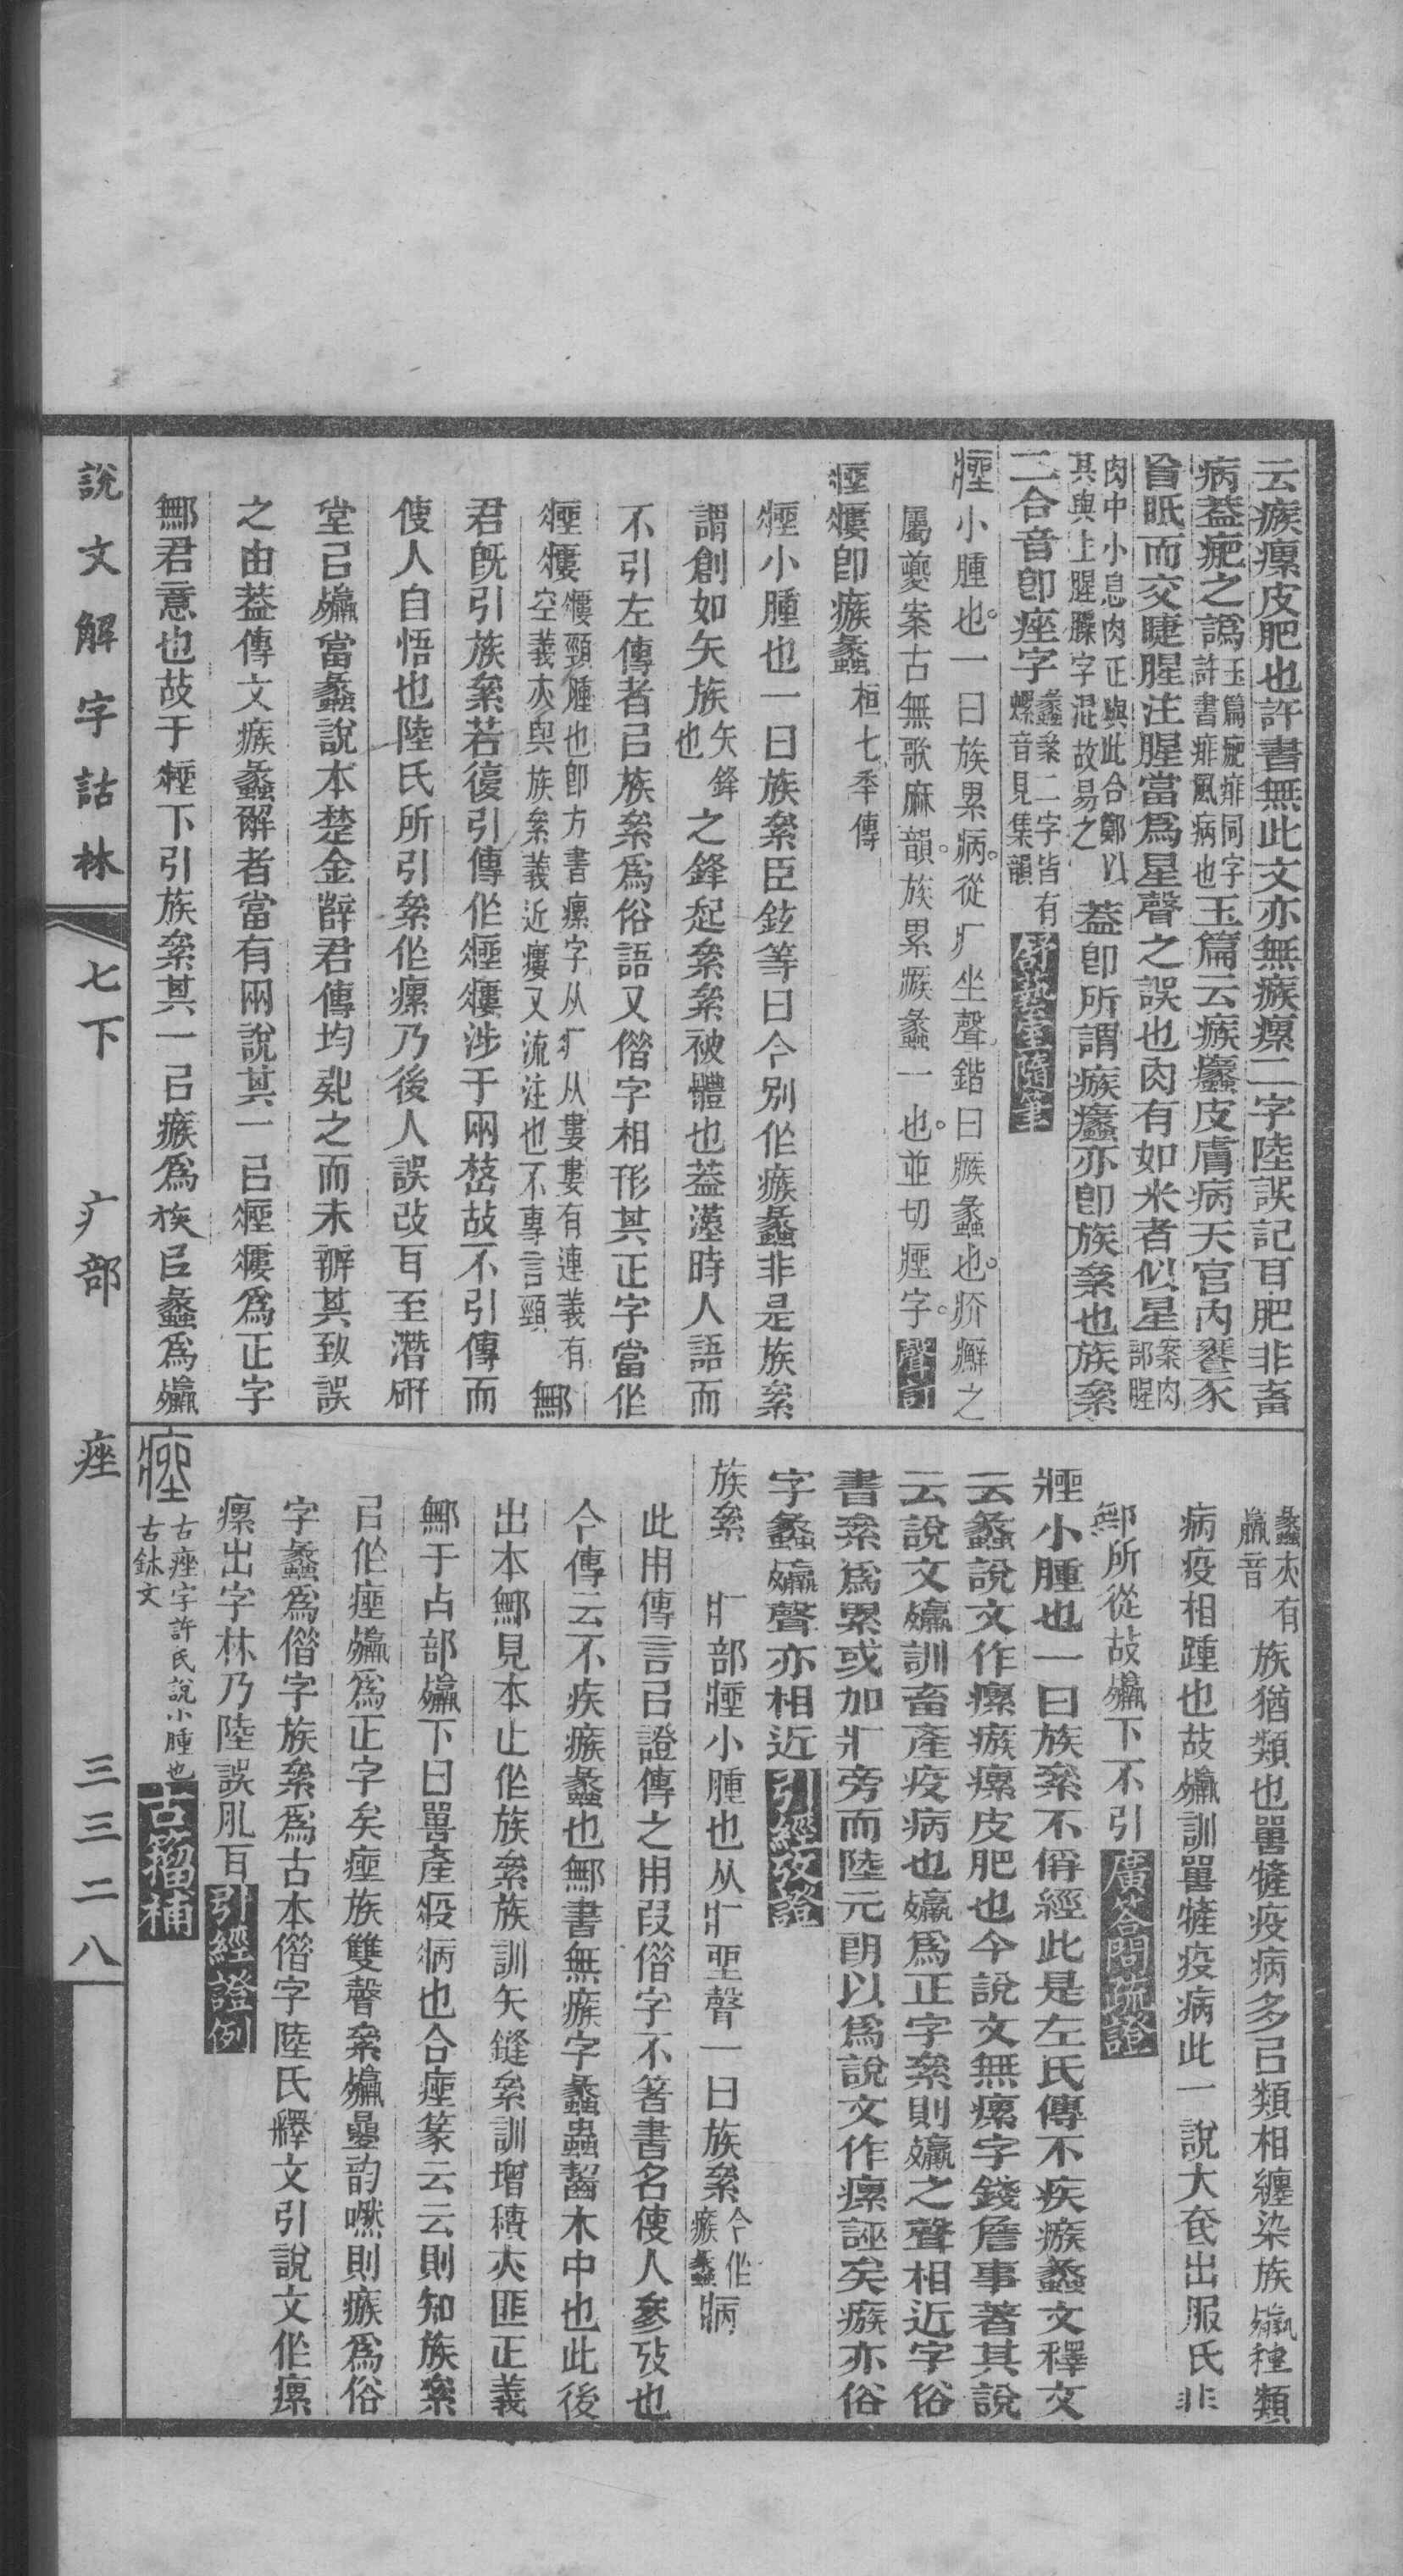 云瘯瘰皮肥也許書無此文亦無瘯瘰二字陸誤記耳肥非畜
病蓋疤之譌玉篇疕痱同字許書痱風病也玉篇云瘯蠡皮膚病天官內饔豕
盲眂而交睫腥注腥當爲星聲之誤也肉有如米者似星案肉部腥
肉中小息肉正與此合鄭以其與上腥臊字混故易之蓋卽所謂瘯蠡亦卽族絫也族絫
二合音卽痤字蠡絫二字皆有螺音見集韻
痤小腫也一曰族累病從疒坐聲鍇曰瘯蠡也疥癬之
屬夔案古無歌麻韻族累瘯蠡一也並切痤字聲句
痤瘻卽瘯蠡桓七秊傳
痤小腫也一曰族絫臣鉉等曰今別作瘯蠡非是族絫
謂創如矢族矢鋒也之鋒起絫絫被體也蓋漢時人語而
不引左傳者㠯族絫爲俗語又僭字相形其正字當作
痤瘻瘻頸腫也卽方書瘰字从疒从婁婁有連義有空義亦與族絫義近瘻又流注也不專言頸鄦
君旣引族絫若復引傳作痤瘻涉于兩歧故不引傳而
使人自悟也陸氏所引絫作瘰乃後人誤改耳至潛硏
堂㠯㿖當蠡說本楚金辥君傳均乿之而未辧其致誤
之由葢傳文瘯蠡解者當有兩說其一㠯痤瘻爲正字
鄦君意也故于痤下引族絫其一㠯瘯爲族㠯蠡爲㿖
說文解字詁林 七下 疒部 痤 三三二八
蠡亦有蠃音族猶類也嘼犍疫病多㠯類相纏染族㿖種類
病疫相踵也故㿖訓嘼犍疫病此一說大氐出服氏非
鄦所從故㿖下不引廣荅問疏證
痤小腫也一曰族絫不偁經此是左氏傳不疾瘯蠡文釋文
云蠡說文作瘰瘯瘰皮肥也今說文無瘰字錢詹事著其說
云說文㿖訓畜產疫病也㿖爲正字絫則㿖之聲相近字俗
書絫爲累或加疒旁而陸元朗以爲說文作瘰誣矣瘯亦俗
字蠡㿖聲亦相近引經攷證
族絫 疒部痤小腫也从疒坐聲一曰族絫今作瘯蠡病
此用傳言㠯證傳之用叚僭字不箸書名使人參攷也
今傳云不疾瘯蠡也鄦書無瘯字蠡蟲齧木中也此後
出本鄦見本止作族絫族訓矢鏠絫訓增積亦匪正義
鄦于歺部㿖下曰嘼產疫病也合痤篆云云則知族絫
㠯作痤㿖爲正字矣痤族雙聲絫㿖曡韵嘫則瘯爲俗
字蠡爲僭字族絫爲古本僭字陸氏釋文引說文作瘰
瘰出字林乃陸誤肊耳引經證例
古痤字許氏說小腫也古鉨文古籀補